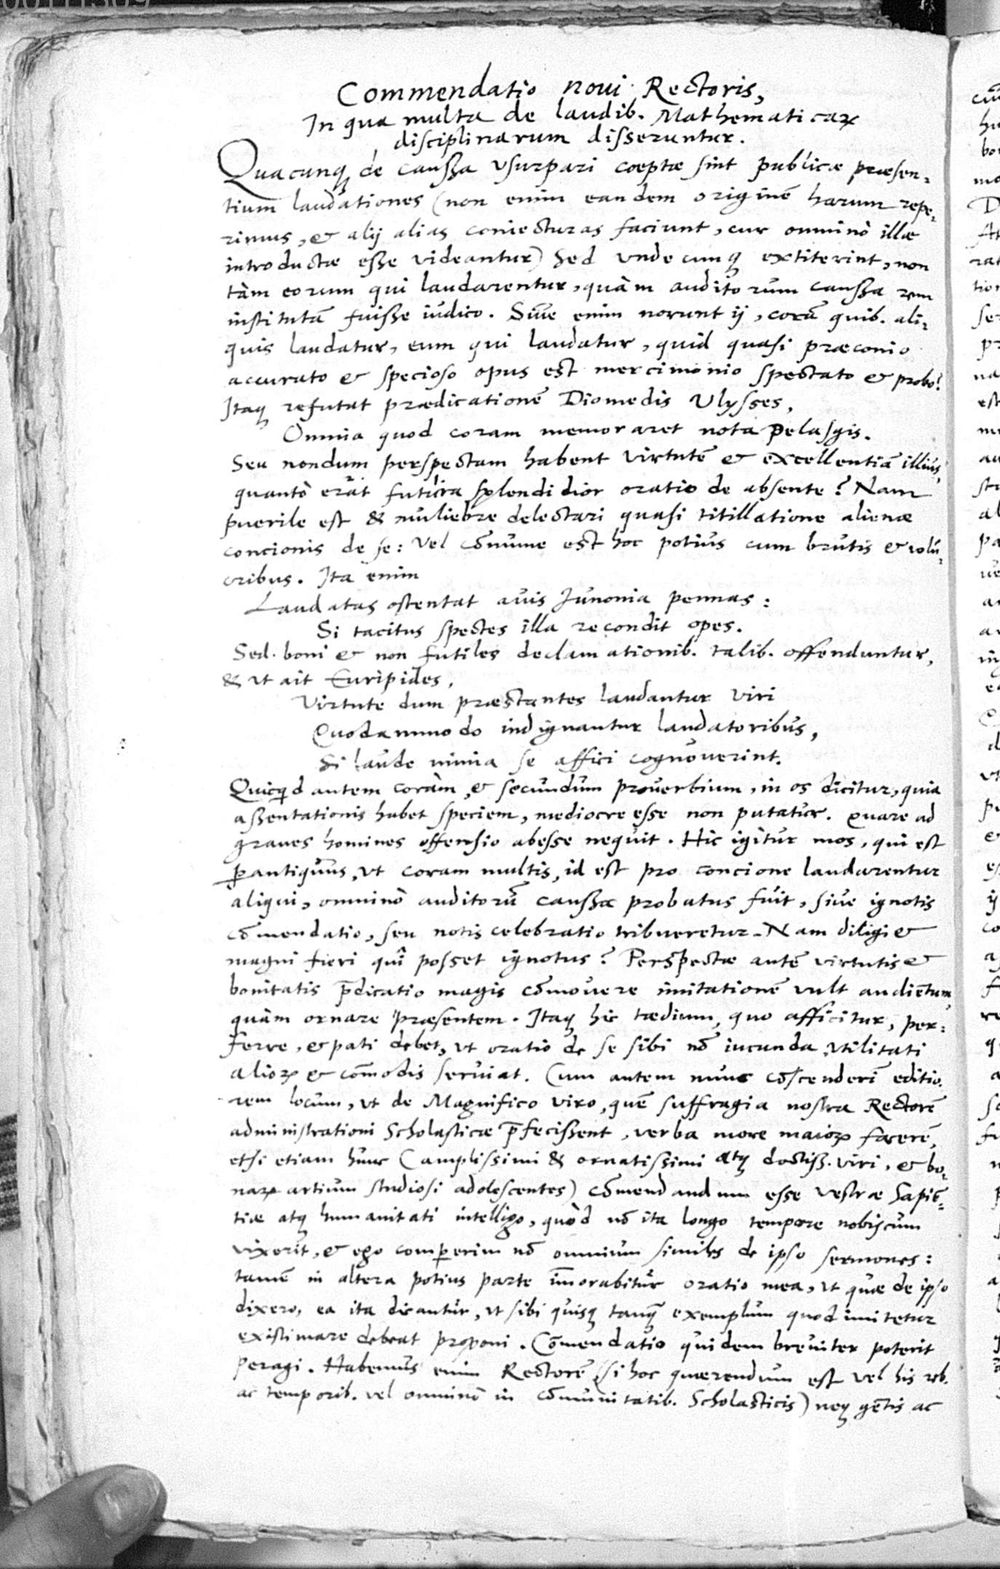 Commendatio noui Rectoris,
In qua multa de laudib. Mathematicaꝝ
disciplinarum disseruntur.
Quacunqꝫ de caussa vsurpari coeptæ sint publicæ præsen-
tium laudationes (non enim eandem originē harum repe-
rimus, & alij alias coniecturas faciunt, cur omninò illæ
introductæ esse videantur) Sed vndecunqꝫ extiterint, non
tàm eorum qui laudarentur, quàm auditorum caussa rem
institutā fuisse iudico. Siue enim norunt ij, corā quib. ali-
quis laudatur, eum qui laudatur, quid quasi præconio
accurato & specioso opus est mercimonio spectato & probo?
Itaqꝫ refutat prædicationē Diomedis Ulysses,
Omnia quod coram memoraret nota Pelasgis.
Seu nondum perspectam habent virtutē & excellentiā illius,
quantò erāt futura splendidior oratio de absente? Nam
puerile est & muliebre delectari quasi titillatione alienæ
concionis de se: vel cōmune est hoc potius cum brutis & volu-
cribus. Ita enim
Laudatas ostentat auis Junonia pennas:
Si tacitus spectes illa recondit opes.
Sed boni & non futiles declamationib. talib. offenduntur,
& vt ait Euripides,
Virtute dum præstantes laudantur viri
Quodammodo indignantur laudatoribus,
Si laude nimia se affici cognouerint.
Quicqd autem coràm, & secundum prouerbium, in os dicitur, quia
assentationis habet speciem, mediocre esse non putatur. Quare ad
graues homines offensio abesse nequit. Hic igitur mos, qui est
ꝑantiquus, vt coram multis, id est pro concione laudarentur
aliqui, omninò auditorū caussa probatus fuit, siue ignotis
cōmendatio, seu notis celebratio tribueretur. Nam diligi &
magni fieri quî posset ignotus? Perspectæ autē virtutis &
bonitatis p̄dicatio magis cōmouere imitationē vult audientium,
quàm ornare præsentem. Itaqꝫ hic tædium, quo afficitur, per-
ferre, & pati debet, vt oratio de se sibi nō iucunda vtilitati
alioꝝ & cōmodis seruiat. Cum autem nunc cōscenderī editio-
rem locum, vt de Magnifico viro, quē suffragia nostra Rectorē
administrationi Scholasticæ p̄fecissent, verba more maioꝝ facerē,
etsi etiam hunc (amplissimi & ornatissimi atqꝫ doctiss. viri, & bo-
naꝝ artium studiosi adolescentes) cōmendandum esse vestræ Sapiē-
tiæ atqꝫ humanitati intelligo, quòd nō ita longo tempore nobiscum
vixerit, & ego comperim nō omnium similes de ipso sermones:
tamē in altera potius parte īmorabitur oratio mea, vt quæ de ipso
dixero, ea ita dicantur, vt sibi quisqꝫ tanqꝫ exemplum quod imitetur
existimare debeat proponi. Cōmendatio quidem breuiter poterit
peragi. Habemus enim Rectorē (si hoc quærendum est vel his reb.
ac temporib. vel omninò in cōmunitatib. Scholasticis) neqꝫ gētis ac